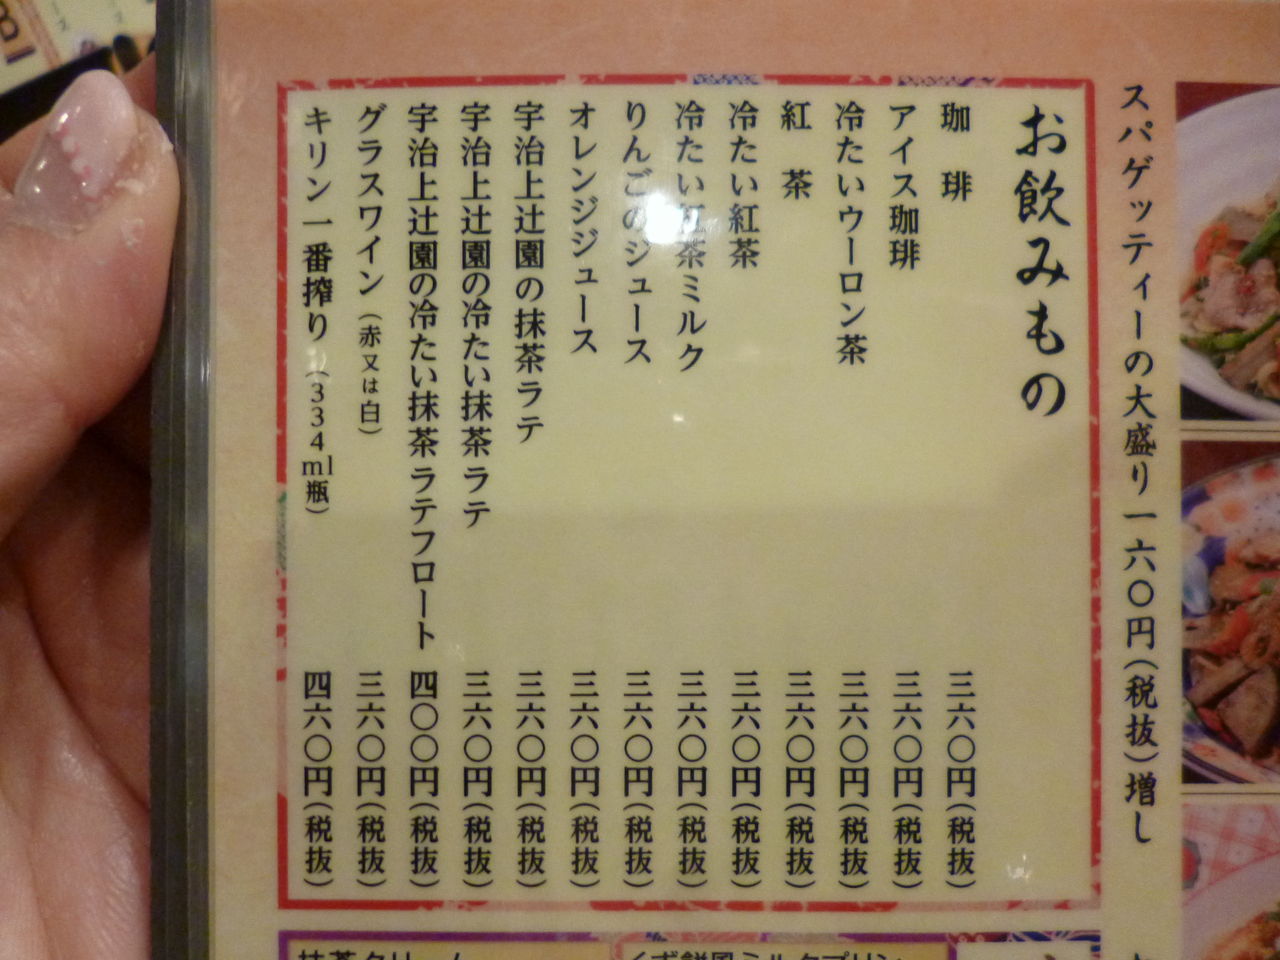 スパゲッティーの大盛り一六〇円(税抜)増し
お飲みもの
珈琲 三六〇円(税抜)
アイス珈琲 三六〇円(税抜)
冷たいウーロン茶 三六〇円(税抜)
紅茶 三六〇円(税抜)
冷たい紅茶 三六〇円(税抜)
冷たい紅茶ミルク 三六〇円(税抜)
りんごのジュース 三六〇円(税抜)
オレンジジュース 三六〇円(税抜)
宇治上辻園の抹茶ラテ 三六〇円(税抜)
宇治上辻園の冷たい抹茶ラテ 三六〇円(税抜)
宇治上辻園の冷たい抹茶ラテフロート 四〇〇円(税抜)
グラスワイン(赤又は白) 三六〇円(税抜)
キリン一番搾り(334ml瓶) 四六〇円(税抜)